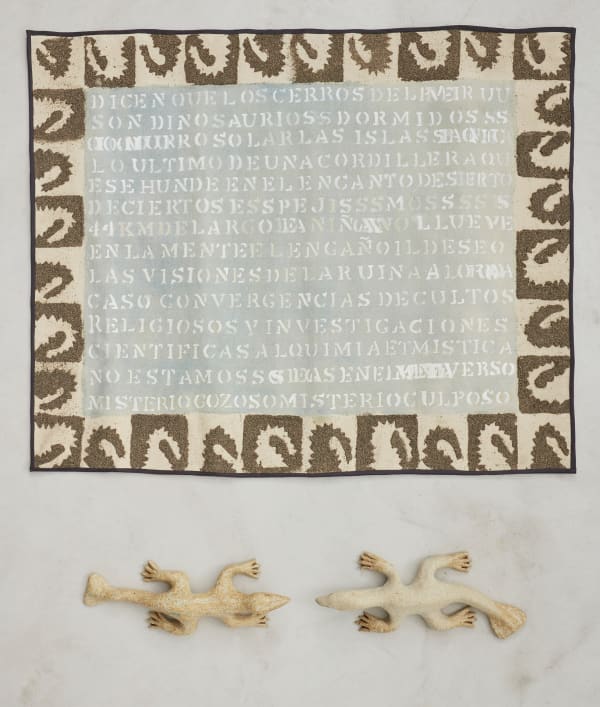 DICEN QUE LOS CERROS DEL
SON DINOSAURIOS DORMIDOS
SOLAR LAS ISLAS
LO ULTIMO DE UNA CORDILLERA QU
ESE HUNDE EN EL ENCANTO DESIERTO
DECIERTOS ESPEJISSSMOSSSSS
44KM DE LARGO NIÑO NO LLUEVE
EN LA MENTE EL ENGAÑO IL DESEO
LAS VISIONES DE LA RUINA A LO
CASO CONVERGENCIAS DE CULTOS
RELIGIOSOS Y INVESTIGACIONES
CIENTIFICAS ALQUIMIA ET MISTICA
NO ESTAMOS EN EL VERSO
MISTERIO GOZOSO MISTERIO CULPOSO